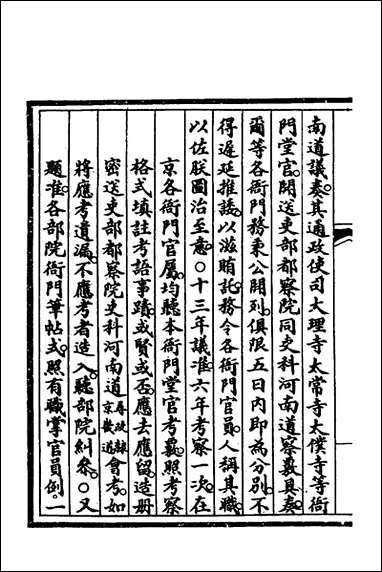 南道議奏。其通政使司大理寺太常寺太僕寺等衙
門堂官。開送吏部都察院同吏科河南道察覈具奏。
爾等各衙門務秉公開列。俱限五日內即為分別。不
得遲延推諉。以滋賄託。務令各衙門官員。人稱其職。
以佐朕圖治至意。○十三年議准。六年考察一次。在
京各衙門官屬。均聽本衙門堂官考覈。照考察
格式填註考語事蹟。或賢或否。應去應留。造册
密送吏部都察院吏科河南道 尋改隸京畿道 會考。如
將應考遺漏。不應考者造入。聽部院糾參。○又
題准。各部院衙門筆帖式。照有職掌官員例。一